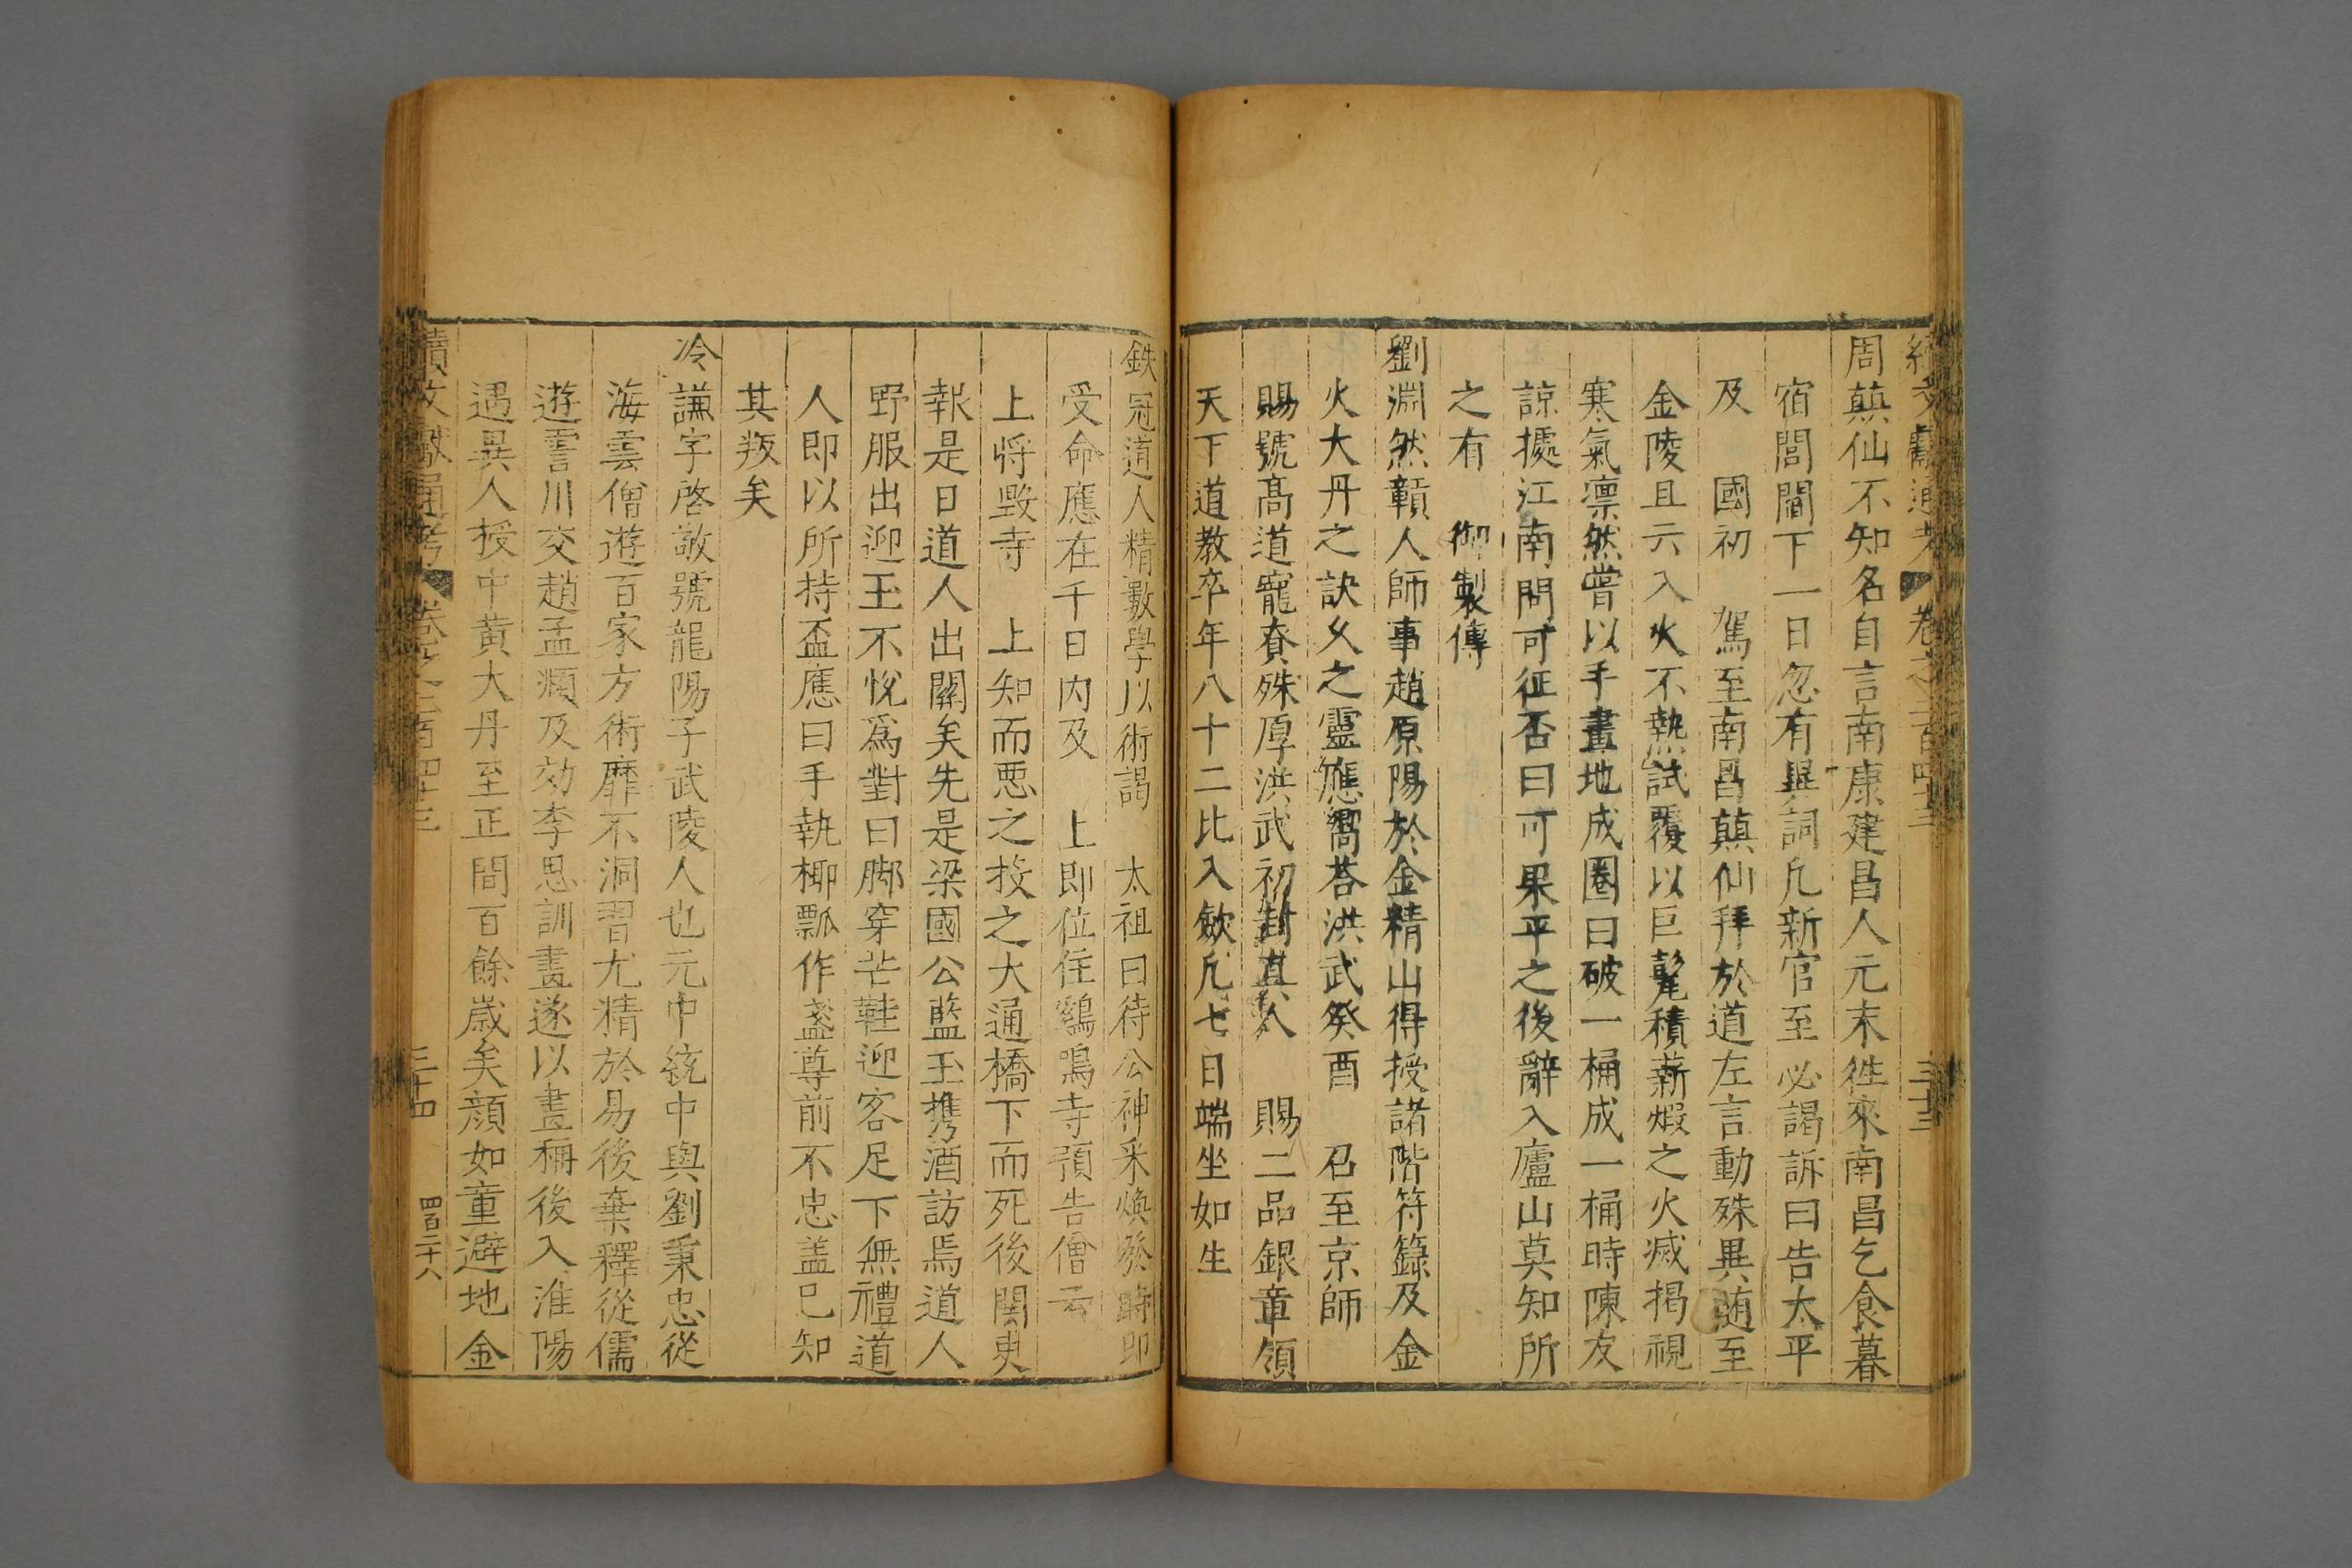 續文獻通考 卷之二百四十三 三十三
周蕻仙不知名自言南康建昌人元末徃來南昌乞食暮
宿閭閻下一日忽有異詞凡新官至必謁訴曰告太平
及 國初 駕至南昌蕻仙拜於道左言動殊異随至
金陵且云入火不熱試覆以巨甏積薪煅之火滅揭視
寒氣凛然甞以手畫地成圏曰破一桶成一桶時陳友
諒據江南問可征否曰可果平之後辭入廬山莫知所
之有 御製傳
劉淵然贛人師事趙原陽於金精山得授諸階符籙及金
火大丹之訣久之靈應響荅洪武癸酉 召至京師
賜號髙道寵賚殊厚洪武初封真人 賜二品銀章領
天下道教卒年八十二比入歛凡七日端坐如生
鉄冠道人精數學以術謁 太祖曰待公神釆煥發時即
受命應在千日内及 上即位住鷄鳴寺預告僧云
上将毀寺 上知而惡之投之大通橋下而死後関吏
報是日道人出關矣先是梁國公藍玉携酒訪焉道人
野服出迎玉不悅爲對曰脚穿芒鞋迎客足下無禮道
人即以所持盃應曰手執椰瓢作盞尊前不忠盖已知
其叛矣
冷謙字啓敬號龍陽子武陵人也元中統中與劉秉忠從
海雲僧遊百家方術靡不洞習尤精於易後棄釋從儒
遊霅川交趙孟頫及効李思訓畫遂以畫稱後入淮陽
遇異人授中黄大丹至正間百餘歳矣顔如童避地金
續文獻通考 卷之二百四十三 三十四 四百二十八